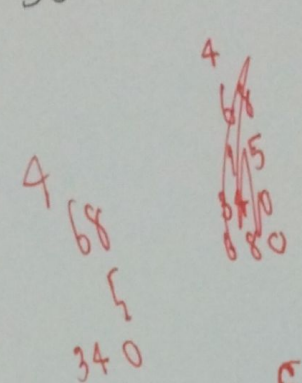 4
68
5
340
4
68
15
340
680